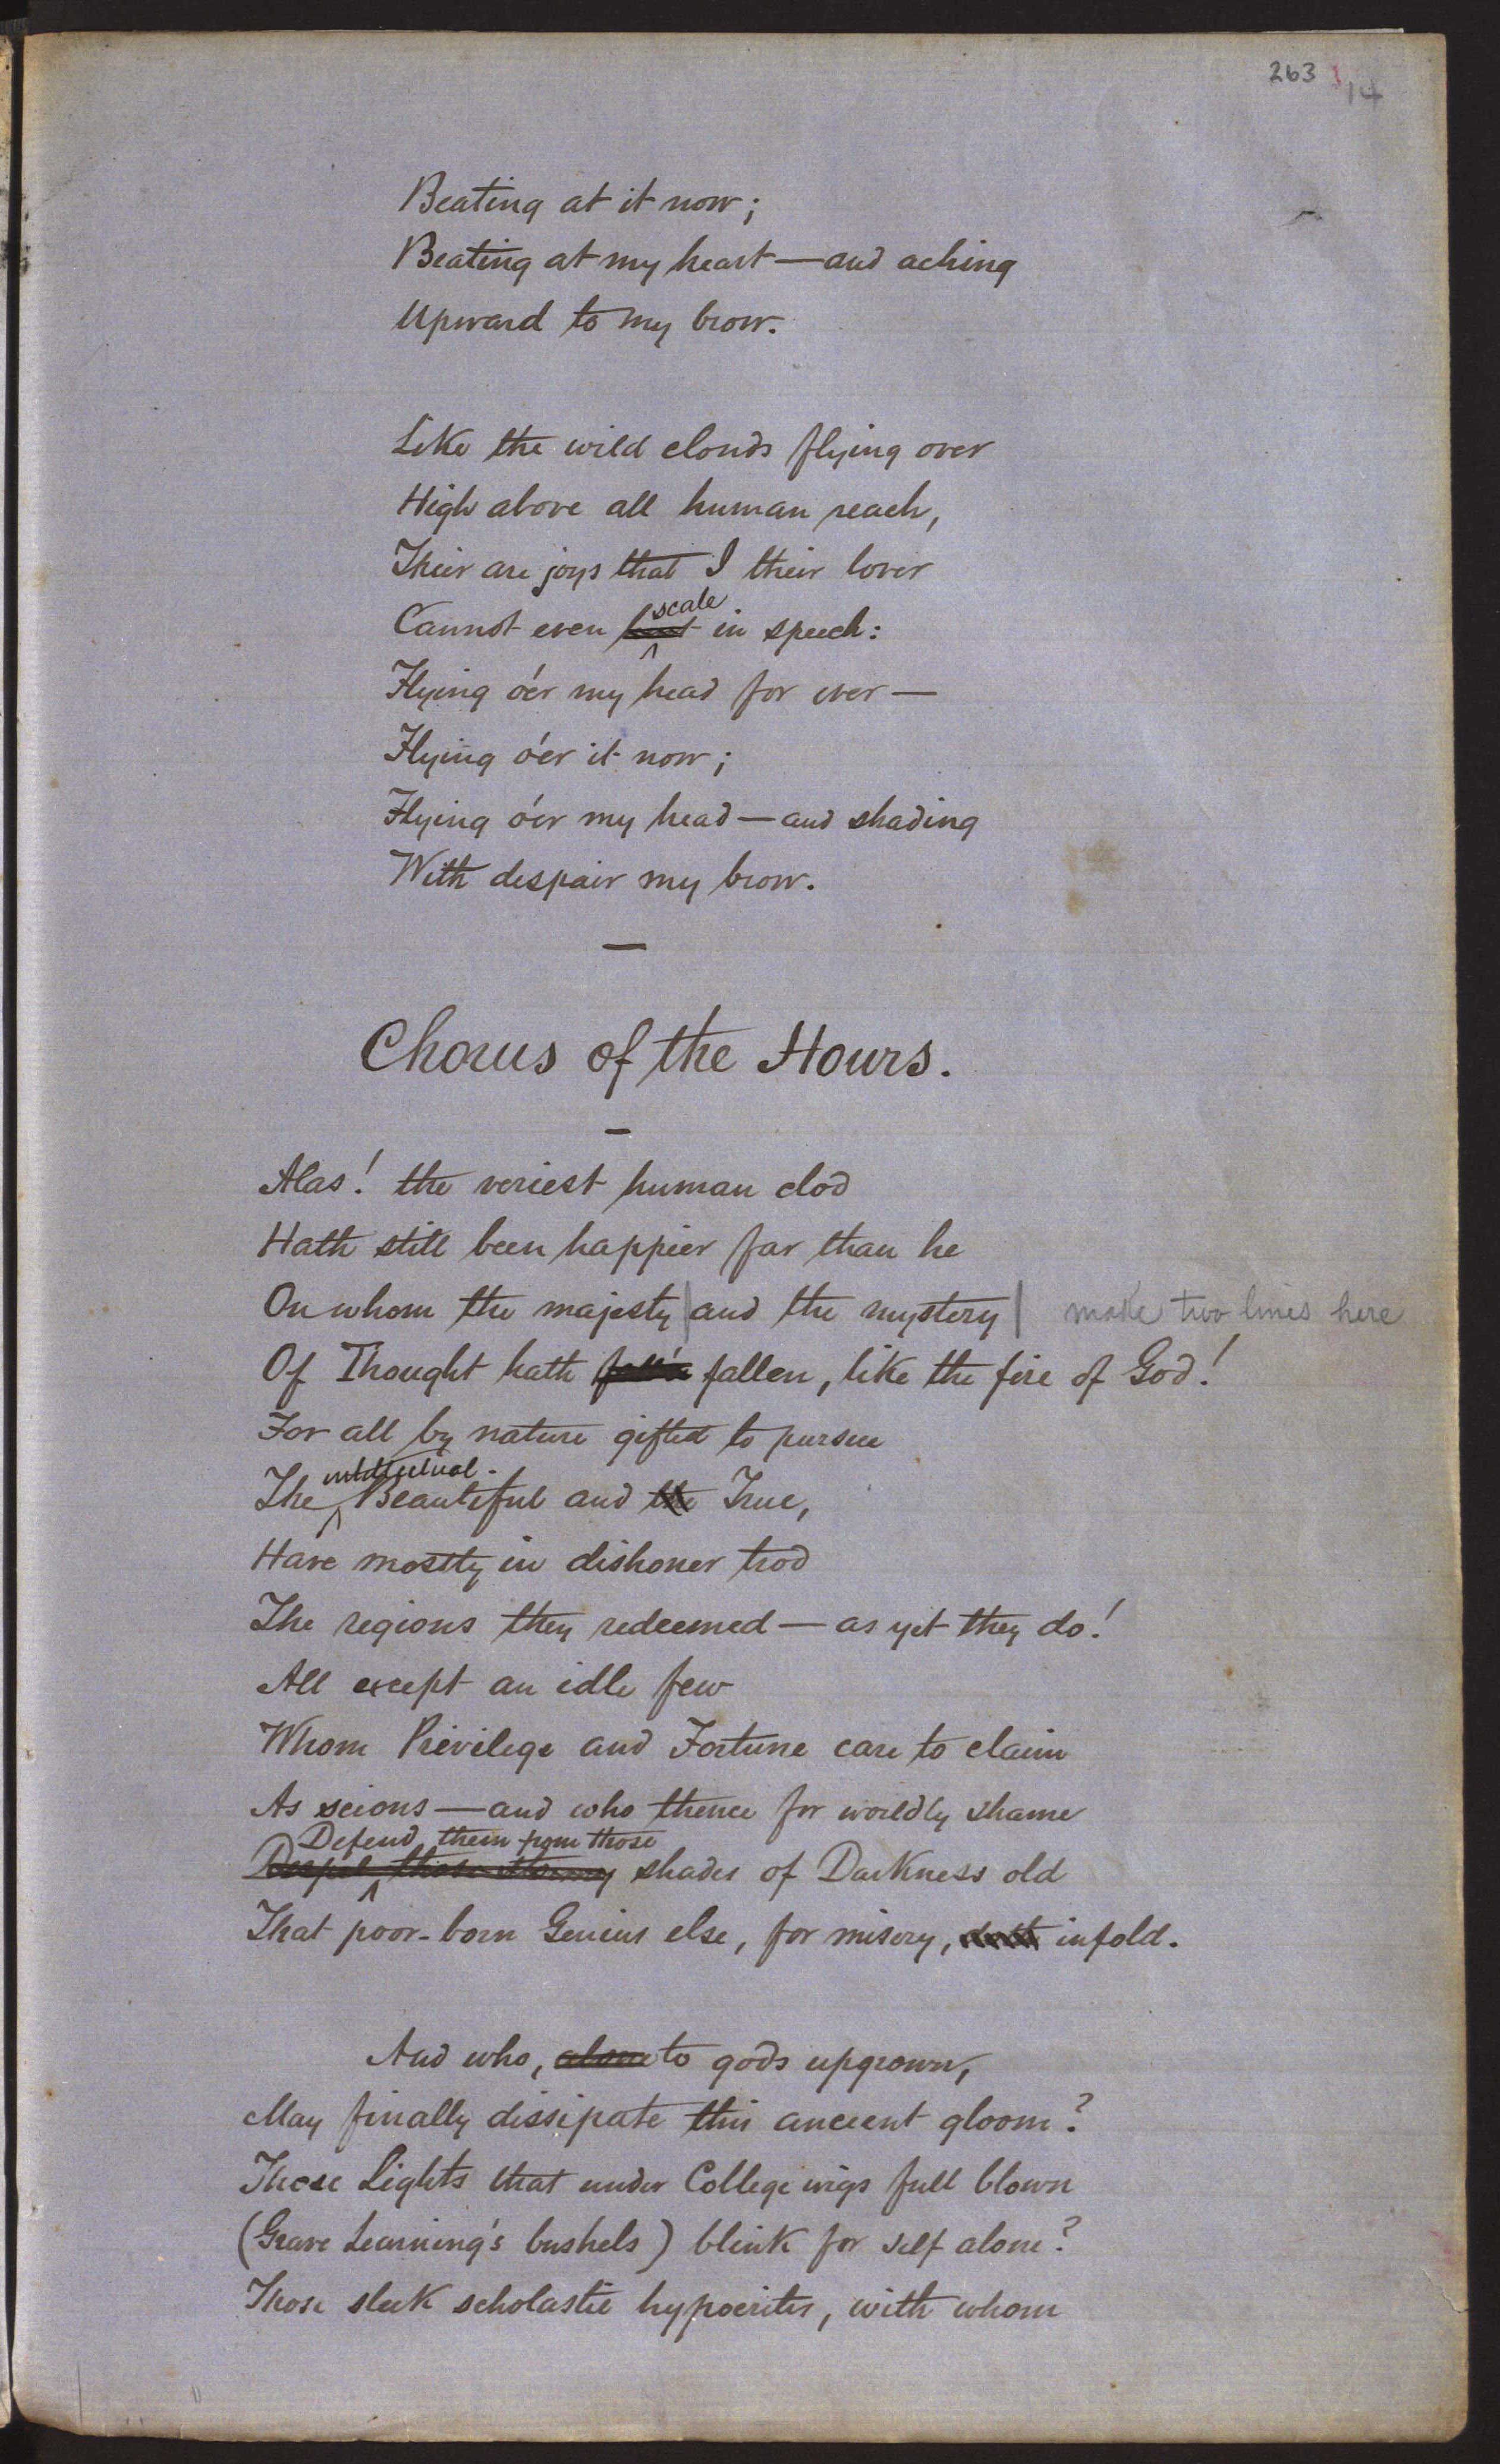 263 14
Beating at it now;
Beating at my heart — and aching
Upward to my brow.
Like the wild clouds flying over
High above all human reach,
Their are joys that I their lover
scale
Cannot even hint in speech:
Flying o'er my head for ever —
Flying o'er it now;
Flying o'er my head — and shading
With despair my brow.
Chorus of the Hours.
Alas! the veriest human clod
Hath still been happier far than he
On whom the majesty | and the mystery | make two lines here
Of Thought hath fall'n fallen, like the fire of God!
For all by nature gifted to pursue
intellectual
The Beautiful and the True,
Have mostly in dishoner trod
The regions they redeemed — as yet they do!
All except an idle few
Whom Privilege and Fortune care to claim
As scions — and who thence for worldly shame
Defend them from those
shades of Darkness old
That poor-born Genius else, for misery, infold.
And who, alone to gods upgrown,
May finally dissipate this ancient gloom?
These Lights that under College wigs full blown
(Grave Learning's bushels) blink for self alone?
Those sleek scholastic hypocrites, with whom